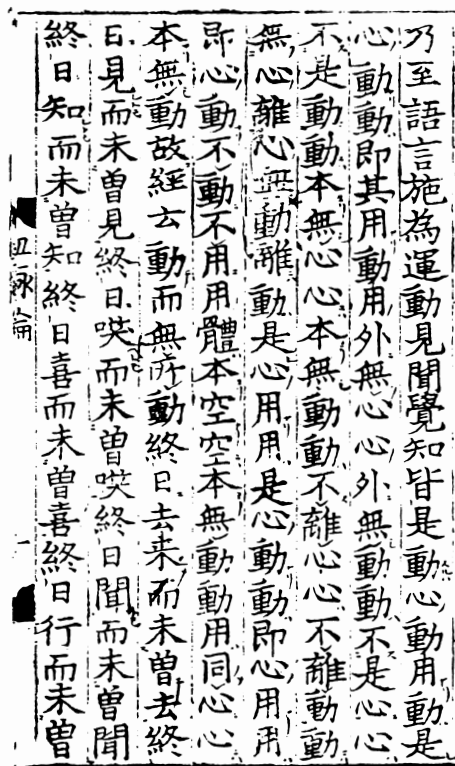 乃至語言施為運動見聞覺知皆是動心動用動是
心動動即其用動用外無心心外無動動不是心心
不是動動本無心心本無動動不離心心不離動動
無心離心無動離動是心用用是心動動即心用用
即心動不動不用用體本空空本無動動用同心心
本無動故經云動而無所動終日去来而未曾去終
日見而未曾見終日咲而未曾咲終日聞而未曾聞
終日知而未曾知終日喜而未曾喜終日行而未曾
血脉論